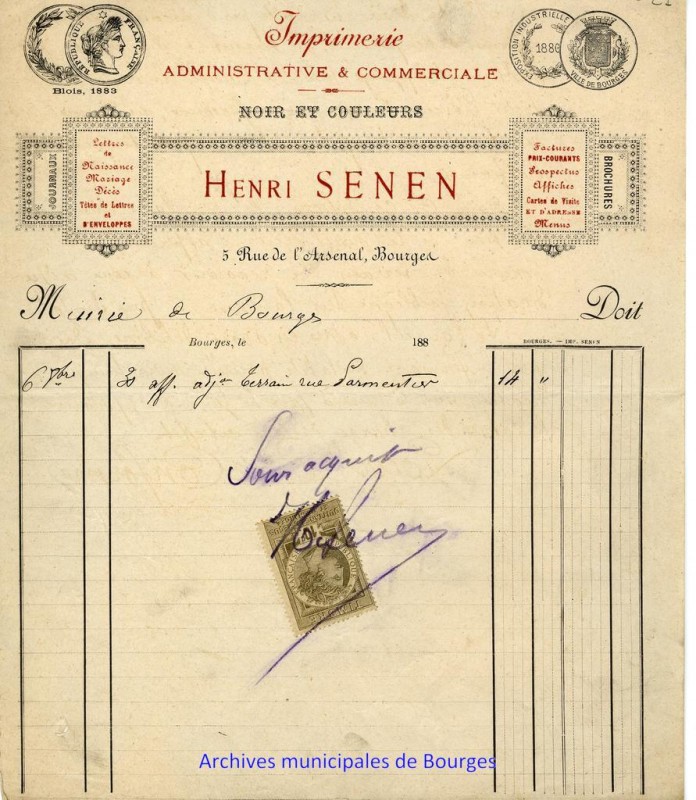 Imprimerie
ADMINISTRATIVE & COMMERCIALE
NOIR ET COULEURS
RÉPUBLIQUE FRANÇAISE
Blois, 1883
EXPOSITION INDUSTRIELLE
1886
VILLE DE BOURGES
JOURNAUX
Lettres
de
Naissance
Mariage
Décès
Têtes de Lettres
et
D'ENVELOPPES
HENRI SENEN
Factures
PRIX-COURANTS
Prospectus
Affiches
Cartes de Visite
ET D'ADRESSE
Menus
BROCHURES
5 Rue de l'Arsenal, Bourges
Mairie de Bourges Doit
Bourges, le 188
BOURGES. — IMP. SENEN
6 7bre 30 aff. adj. Terrain rue Parmentier 14 "
Pour acquit
HSenen
Archives municipales de Bourges